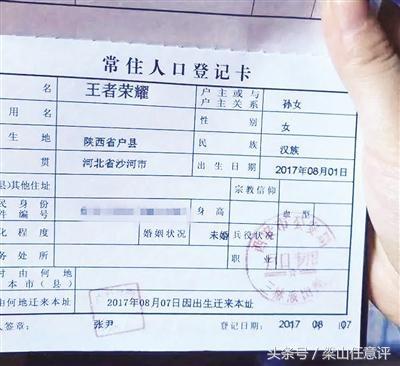 常住人口登记卡
名 王者荣耀 户主或与户主关系 孙女
用名 性别 女
生地 陕西省户县 民族 汉族
贯 河北省沙河市 出生日期 2017年08月01日
县)其他住址 宗教信仰
民身份件编号 身高 血型
化程度 婚姻状况 未婚 兵役状况
务处所 职业
时由何地本市(县)
由何地迁来本址 2017年08月07日因出生迁来本址
人签章: 张尹 登记日期: 2017 08 07
头条号/梁山任意评